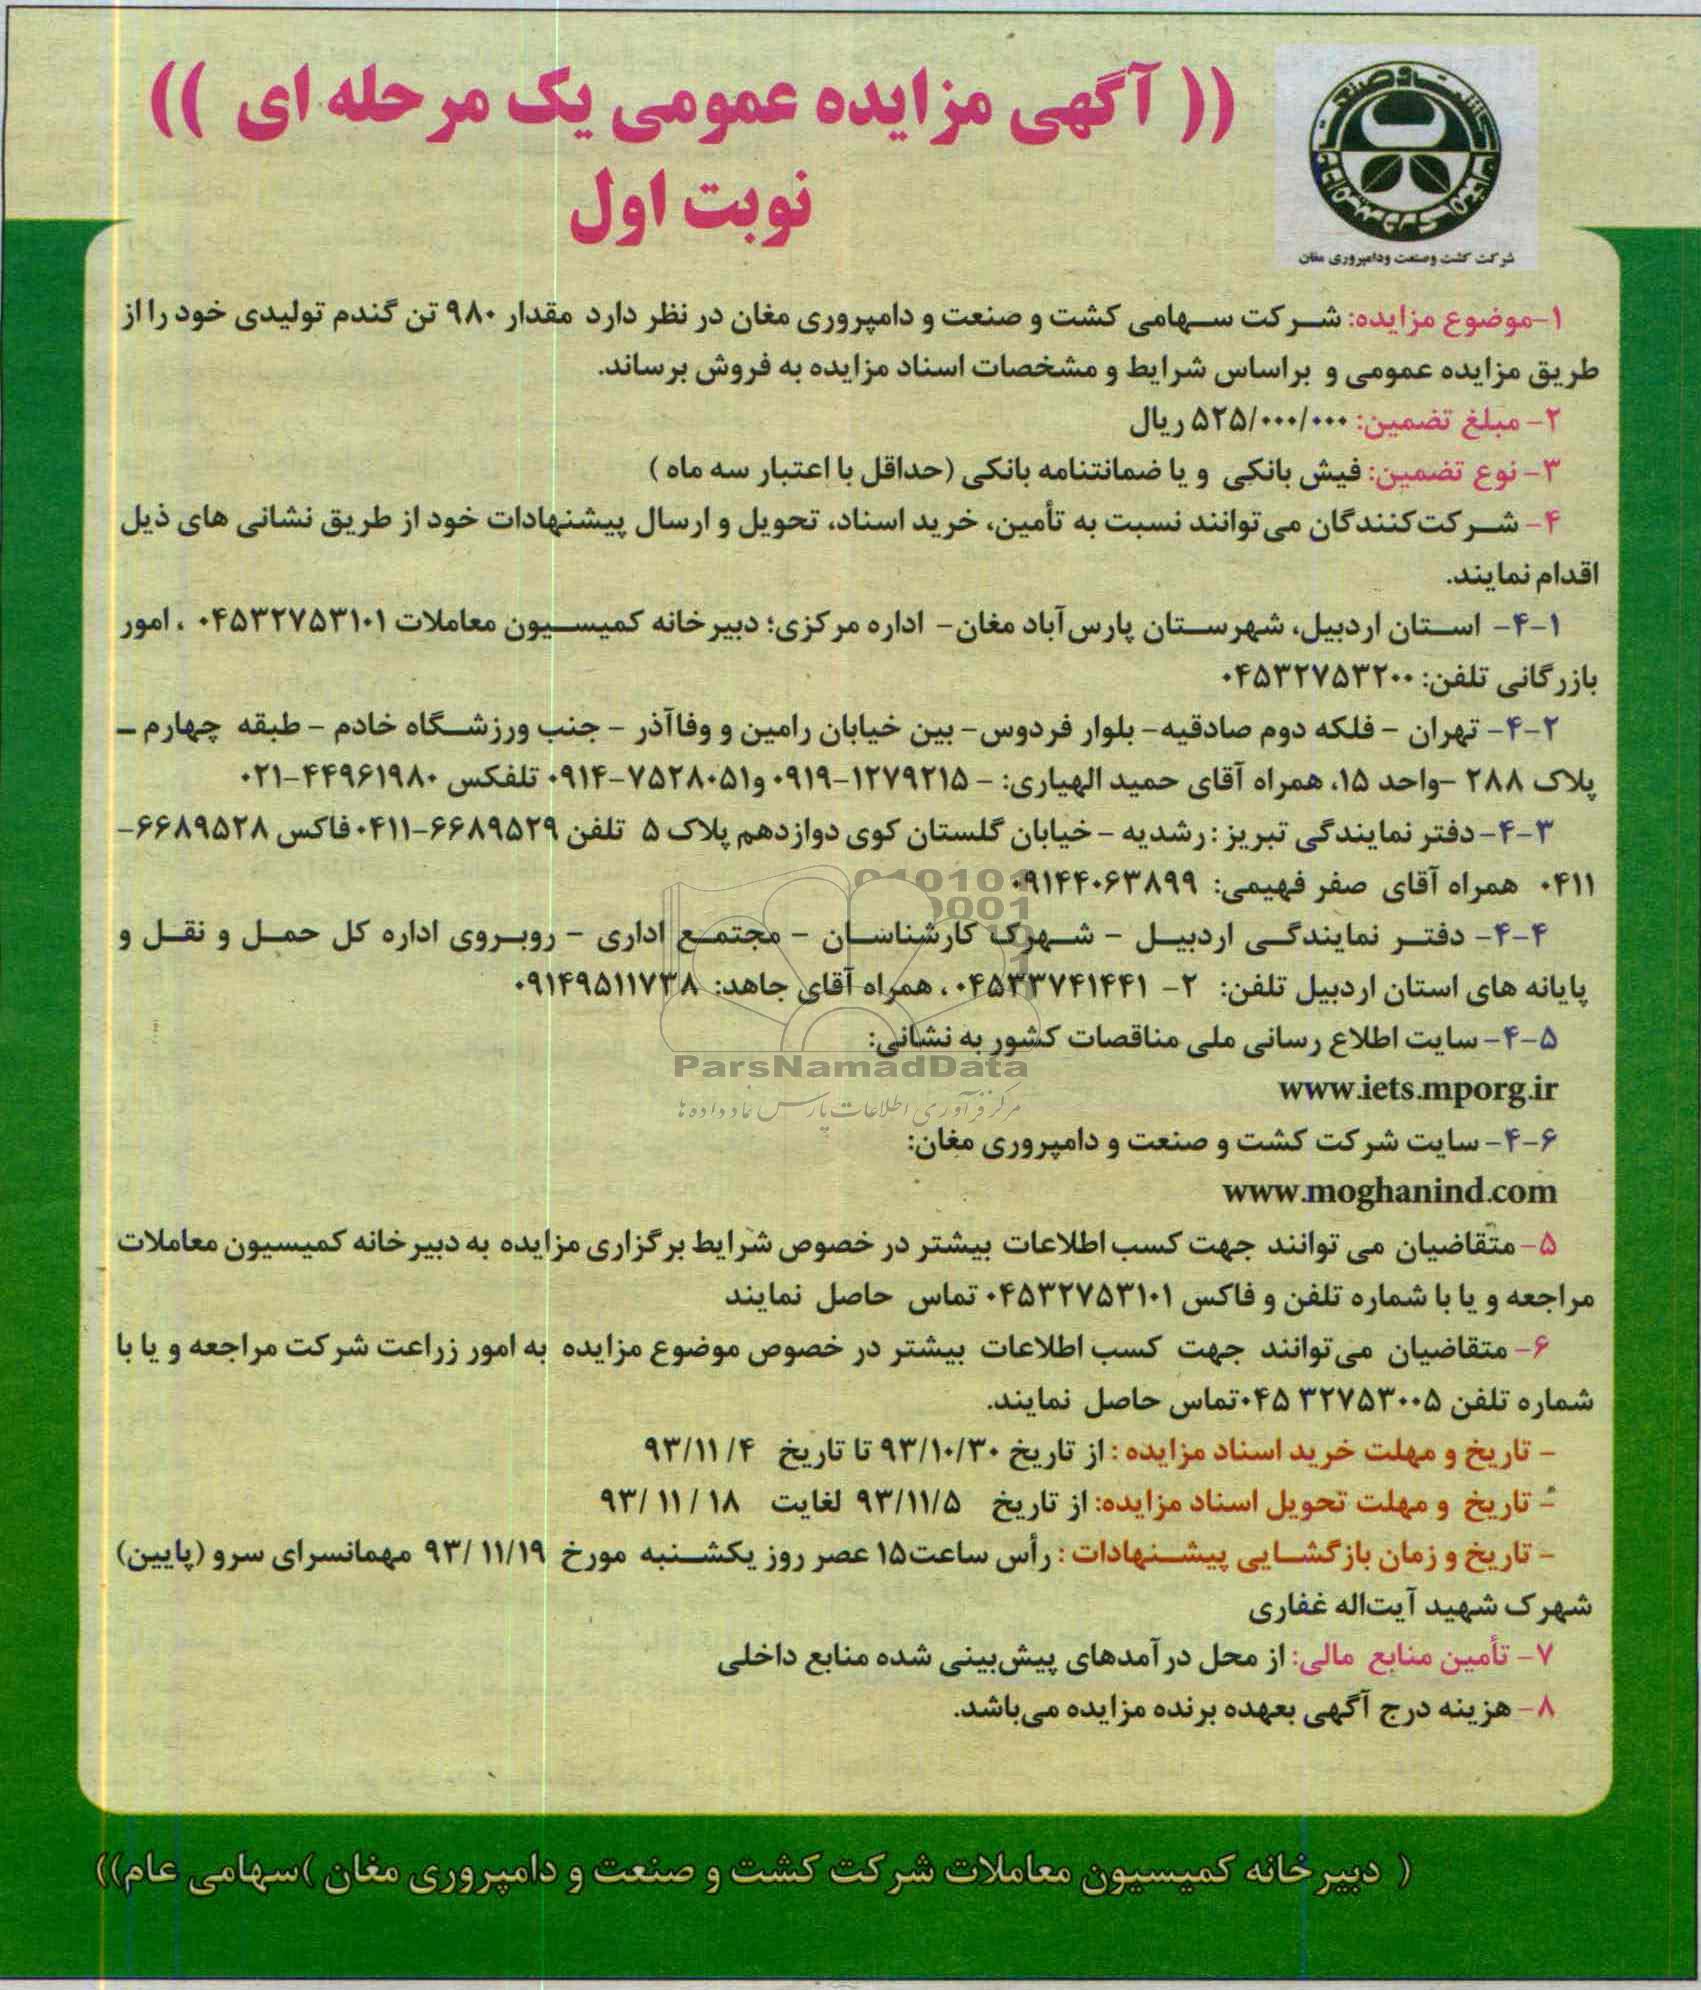 (( آگهی مزایده عمومی یک مرحله ای ))
نوبت اول
شرکت کشت وصنعت ودامپروری مغان
۱-موضوع مزایده: شرکت سهامی کشت و صنعت و دامپروری مغان در نظر دارد مقدار ۹۸۰ تن گندم تولیدی خود را از
طریق مزایده عمومی و براساس شرایط و مشخصات اسناد مزایده به فروش برساند.
۲- مبلغ تضمین: ۵۲۵/۰۰۰/۰۰۰ ریال
۳- نوع تضمین: فیش بانکی و یا ضمانتنامه بانکی (حداقل با اعتبار سه ماه )
۴- شرکت‌کنندگان می‌توانند نسبت به تأمین، خرید اسناد، تحویل و ارسال پیشنهادات خود از طریق نشانی های ذیل
اقدام نمایند.
۴-۱- استان اردبیل، شهرستان پارس‌آباد مغان- اداره مرکزی؛ دبیرخانه کمیسیون معاملات ۰۴۵۳۲۷۵۳۱۰۱ ، امور
بازرگانی تلفن: ۰۴۵۳۲۷۵۳۲۰۰
۴-۲- تهران - فلکه دوم صادقیه- بلوار فردوس- بین خیابان رامین و وفاآذر - جنب ورزشگاه خادم - طبقه چهارم -
پلاک ۲۸۸ -واحد ۱۵، همراه آقای حمید الهیاری: - ۱۲۷۹۲۱۵-۰۹۱۹ و۷۵۲۸۰۵۱-۰۹۱۴ تلفکس ۴۴۹۶۱۹۸۰-۰۲۱
۴-۳-دفتر نمایندگی تبریز : رشدیه - خیابان گلستان کوی دوازدهم پلاک ۵ تلفن ۶۶۸۹۵۲۹-۰۴۱۱ فاکس ۶۶۸۹۵۲۸-
۰۴۱۱ همراه آقای صفر فهیمی: ۰۹۱۴۴۰۶۳۸۹۹
۴-۴- دفتر نمایندگی اردبیل - شهرک کارشناسان - مجتمع اداری - روبروی اداره کل حمل و نقل و
پایانه های استان اردبیل تلفن: ۲- ۰۴۵۳۳۷۴۱۴۴۱ ، همراه آقای جاهد: ۰۹۱۴۹۵۱۱۷۳۸
۴-۵- سایت اطلاع رسانی ملی مناقصات کشور به نشانی:
ParsNamadData
مرکز فرآوری اطلاعات پارس نماد داده ها
www.iets.mporg.ir
۴-۶- سایت شرکت کشت و صنعت و دامپروری مغان:
www.moghanind.com
۵- متقاضیان می توانند جهت کسب اطلاعات بیشتر در خصوص شرایط برگزاری مزایده به دبیرخانه کمیسیون معاملات
مراجعه و یا با شماره تلفن و فاکس ۰۴۵۳۲۷۵۳۱۰۱ تماس حاصل نمایند
۶- متقاضیان می‌توانند جهت کسب اطلاعات بیشتر در خصوص موضوع مزایده به امور زراعت شرکت مراجعه و یا با
شماره تلفن ۳۲۷۵۳۰۰۵ ۰۴۵تماس حاصل نمایند.
- تاریخ و مهلت خرید اسناد مزایده : از تاریخ ۹۳/۱۰/۳۰ تا تاریخ ۹۳/۱۱/۴
- تاریخ و مهلت تحویل اسناد مزایده: از تاریخ ۹۳/۱۱/۵ لغایت ۹۳/۱۱/۱۸
- تاریخ و زمان بازگشایی پیشنهادات : رأس ساعت۱۵ عصر روز یکشنبه مورخ ۹۳/۱۱/۱۹ مهمانسرای سرو (پایین)
شهرک شهید آیت‌اله غفاری
۷- تأمین منابع مالی: از محل درآمدهای پیش‌بینی شده منابع داخلی
۸- هزینه درج آگهی بعهده برنده مزایده می‌باشد.
( دبیرخانه کمیسیون معاملات شرکت کشت و صنعت و دامپروری مغان )سهامی عام))